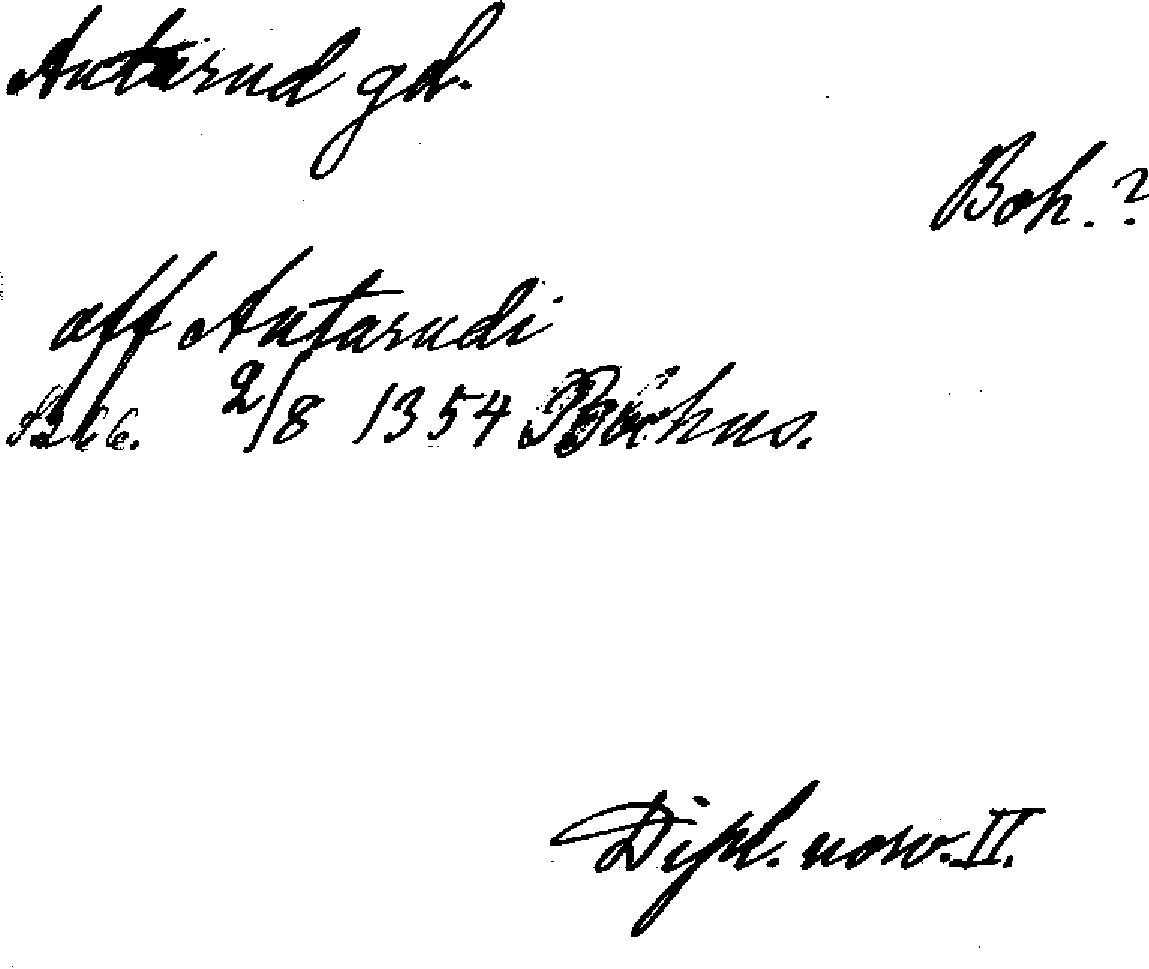 Autarud gd.
Boh.?
aff Autarudi
2/8 1354 Bohus.
Dipl. norv. II.